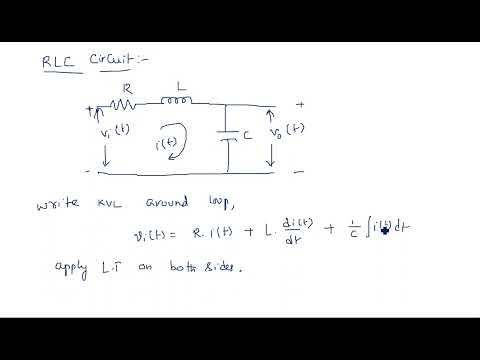 RLC Circuit:-
R L
+ +
vi(t) i(t) C vo(t)
- -
write KVL around loop,
vi(t) = R. i(t) + L. di(t)/dt + 1/C ∫i(t) dt
apply L.T on both sides.